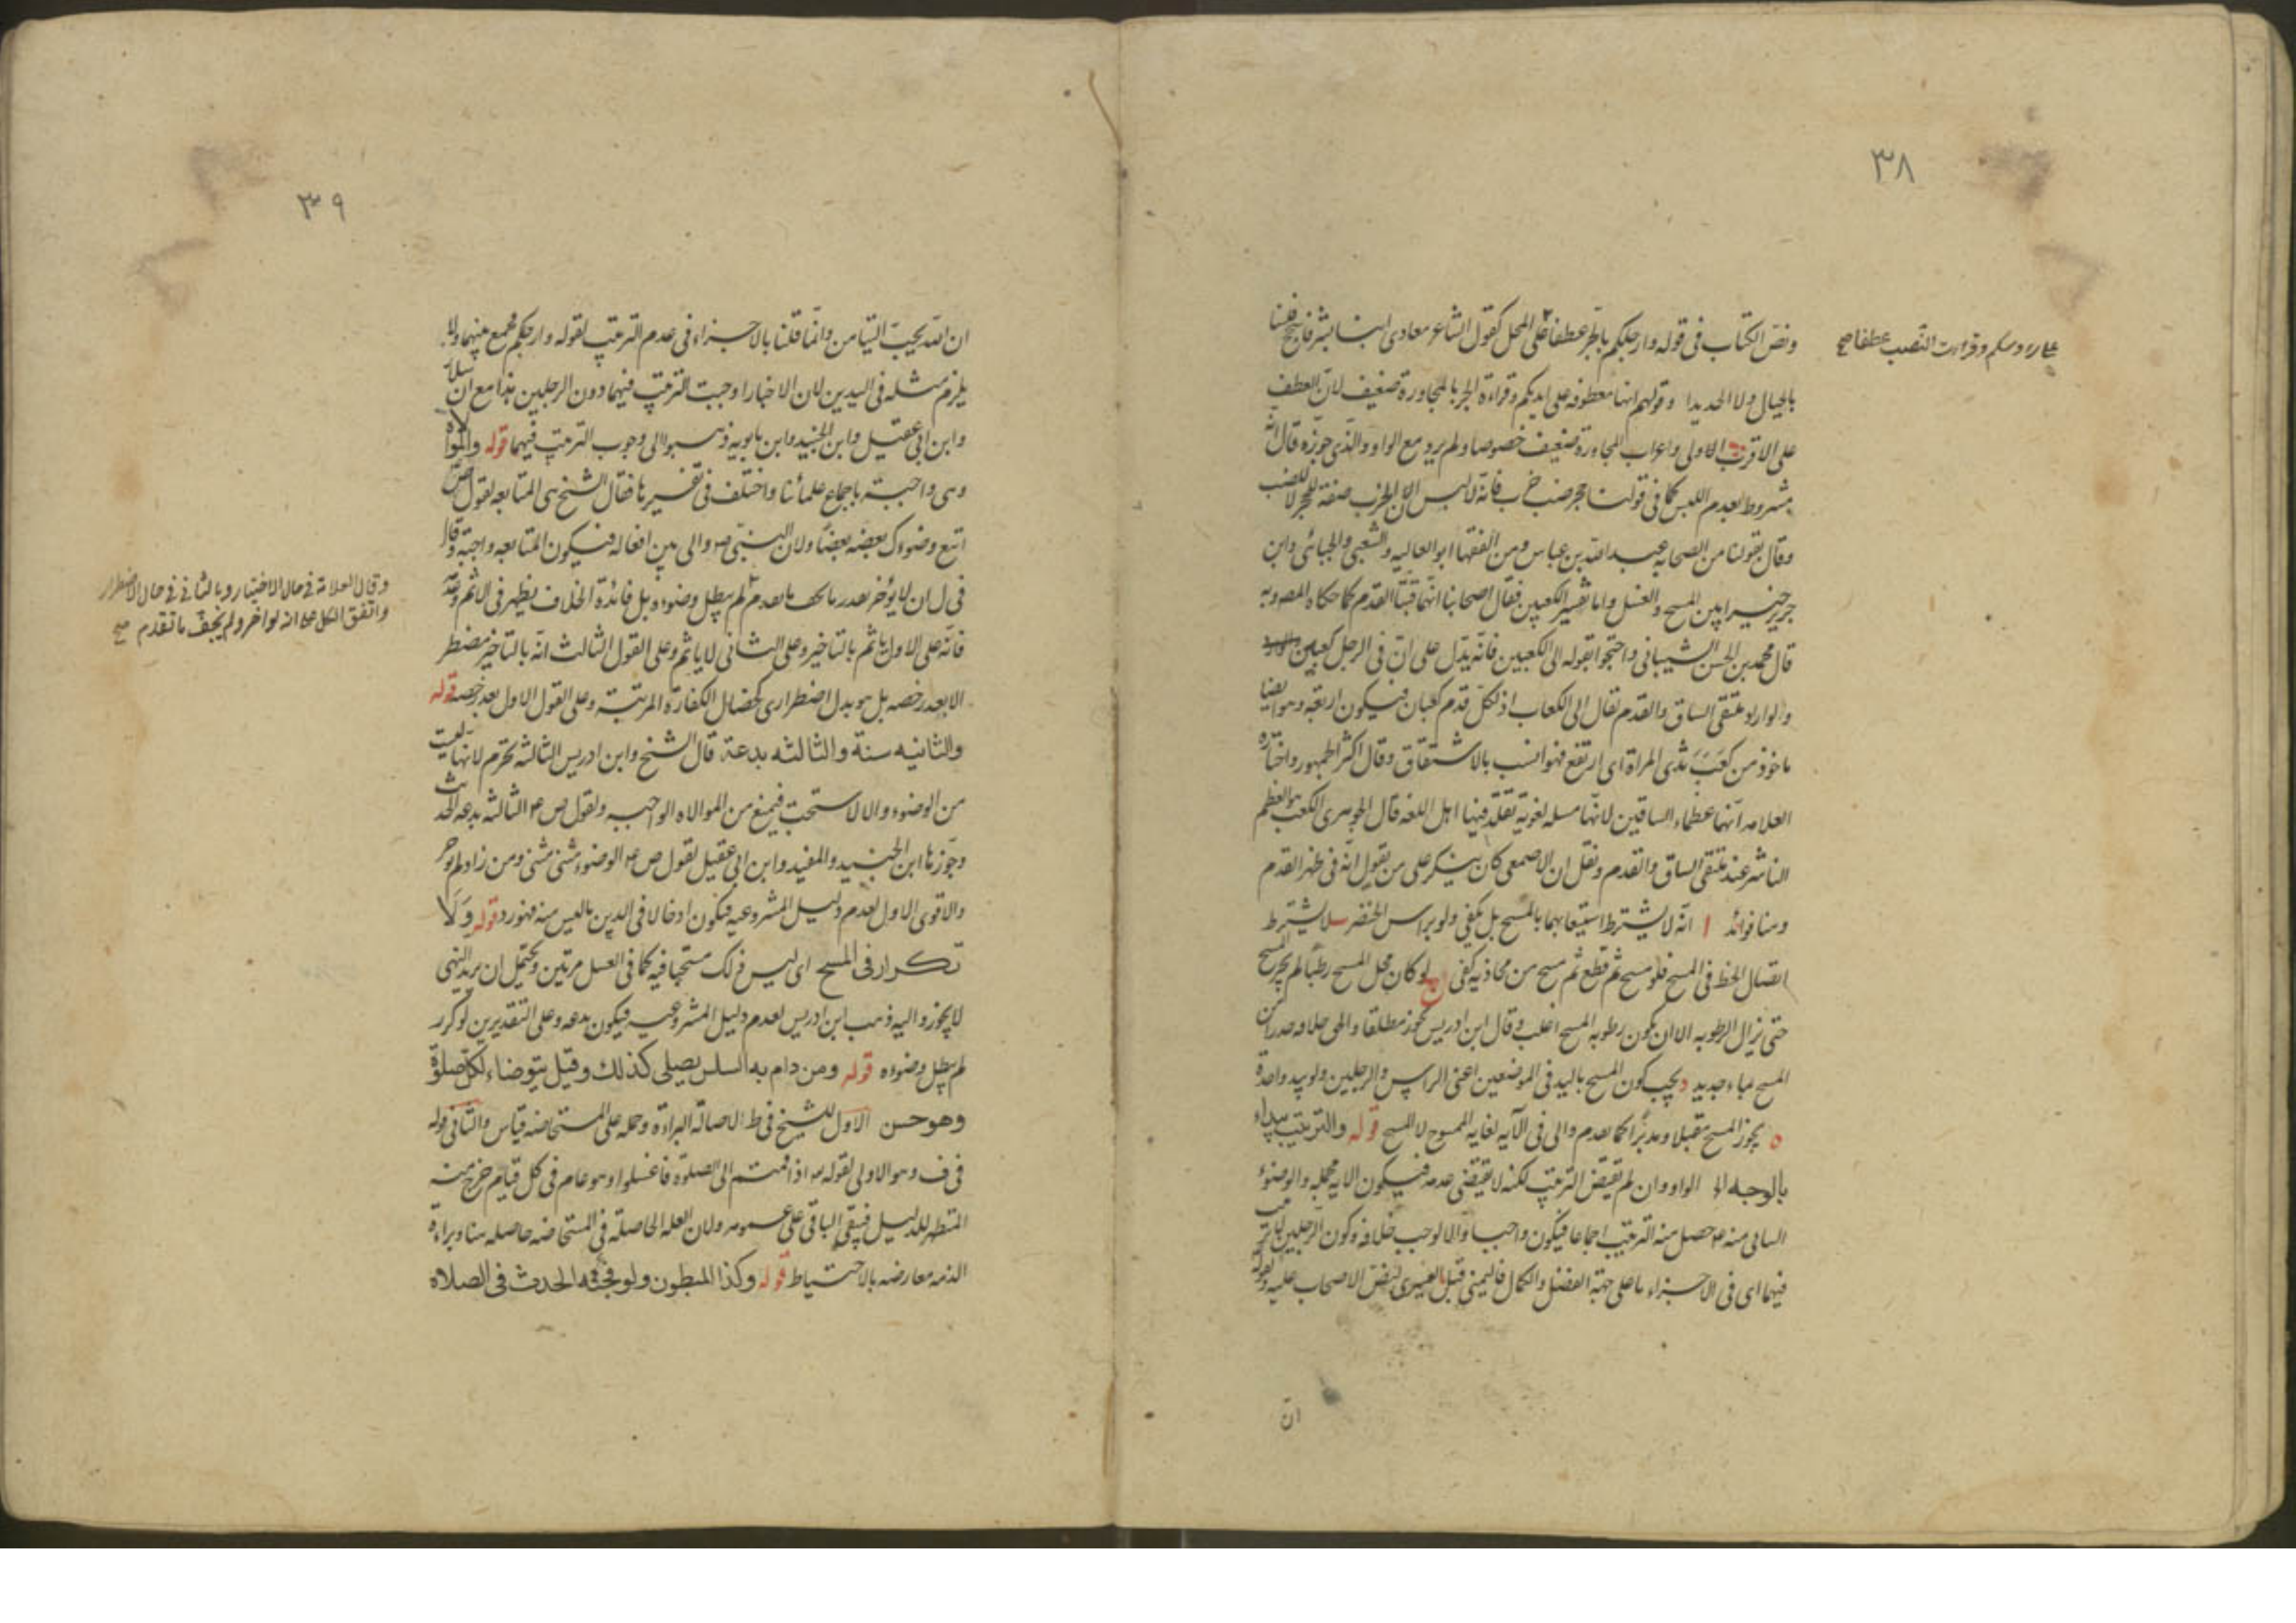 ٣٨
ونص الكتاب في قوله وارجلكم بالجر عطفا على المحل كقول الشاعر معاوى اننا بشر فاسجح فلسنا
على رءوسكم وقراءت النصب عطفا صح
بالجبال ولا الحديدا وقولهم انها معطوفه على ايديكم وقراءة الجر بالمجاورة ضعيف لان العطف
على الاقرب اولى واعراب المجاورة ضعيف خصوصا ولم يرد مع الواو والذي جوزه قال انه
مشروط بعدم اللبس كما في قولنا جحر ضب خرب فانه لا لبس لان الخرب صفة للجحر لا للضب
وقال بقولنا من الصحابه عبد الله بن عباس ومن الفقها ابو العاليه والشعبي والجبائى وابن
جرير خير بين المسح والغسل واما تفسير الكعبين فقال اصحابنا انهما قبتا القدم كما حكاه
قال محمد بن الحسن الشيبانى واحتجوا بقوله الى الكعبين فانه يدل على ان في الرجل كعبين
ولو اراد ملتقى الساق والقدم لقال الى الكعاب اذ لكل قدم كعبان فيكون اربعة وهو ايضا
ماخوذ من كعب ثدى المراة اى ارتفع فهو انسب بالاشتقاق وقال اكثر الجمهور واختاره
العلامه انهما عظماء الساقين لانها مسله لغوية تقلد فيها اهل اللغه قال الجوهرى الكعب هو العظم
الناشر عند ملتقى الساق والقدم ونقل ان الاصمعى كان ينكر على من يقول انه في ظهر القدم
وهنا فوائد ا انه لا يشترط استيعابهما بالمسح بل يكفي ولو براس الخنصر لا يشترط
اتصال الخط في المسح فلو مسح ثم قطع ثم مسح من محاذيه كفى ج لو كان محل المسح رطبا لم يجز المسح
حتى تزال الرطوبه الا ان يكون رطوبه المسح اغلب وقال ابن ادريس يجوز مطلقا والحق خلافه حذرا من
المسح بماء جديد د يجب كون المسح باليد في الموضعين اعنى الراس والرجلين ولو بيد واحدة
ه يجوز المسح مقبلا ومدبرا كما تقدم والى في الآيه لغايه الممسوح لا المسح قوله والترتيب يبداء
بالوجه الخ الواو وان لم تقتض الترتيب لكنه لا تقتضى عدمه فيكون الايه مجمله والوضوء
البيانى منه ص حصل منه الترتيب اجماعا فيكون واجبا والا لوجب خلافه وكون الرجلين لا ترتيب
فيهما اى في الاجزاء ما على جهة الفضل والكمال فاليمنى قبل اليسرى لنص الاصحاب عليه ولقوله
ان
٣٩
ان الله يحب التيامن وانما قلنا بالاجزاء في عدم الترتيب لقوله وارجلكم فجمع بينهما ولا
يلزم مثله في اليدين لان الاخبار اوجبت الترتيب فيهما دون الرجلين هذا مع ان سلار
وابن ابى عقيل وابن الجنيد وابن بابويه ذهبوا الى وجوب الترتيب فيهما قوله والموالاه
وهى واجبة باجماع علمائنا واختلف في تفسيرها فقال الشيخ هى المتابعه لقول ص
اتبع وضوءك بعضه بعضا ولان النبى ص والى بين افعاله فيكون المتابعه واجبة وقال
في ل ان لا يؤخر بقدر ما يجف ما تقدم لم يبطل وضوءه بل فائدة الخلاف يظهر في الاثم وعدمه
وقال العلامة في حال الاختيار وبالثاني في حال الاضطرار
واتفق الكل على انه لو اخر ولم يجف ما تقدم صح
فانه على الاول ياثم بالتاخير وعلى الثانى لا ياثم وعلى القول الثالث انه بالتاخير مضطر
الا بعد رخصه بل هو بدل اضطرارى كخصال الكفارة المرتبة وعلى القول الاول بعد رخصه قوله
والثانيه سنة والثالثه بدعة قال الشيخ وابن ادريس الثالثه تحرم لانها ليست
من الوضوء والا لاستحب فيمنع من الموالاه الواجبه ولقول ص ع الثالثه بدعه الحديث
وجوزها ابن الجنيد والمفيد وابن ابى عقيل لقول ص ع الوضوء مثنى مثنى ومن زاد لم يوجر
والاقوى الاول لعدم دليل المشروعيه فيكون ادخالا في الدين ما ليس منه فهو رد قوله ولا
تكرار في المسح اى ليس ذلك مستحبا فيه كما في الغسل مرتين ويحتمل ان يريد النهى
لا يجوز واليه ذهب ابن ادريس لعدم دليل المشروعيه فيكون بدعه وعلى التقديرين لو كرر
لم يبطل وضوءه قوله ومن دام به السلس يصلى كذلك وقيل يتوضاء لكل صلوة
وهو حسن الاول للشيخ في ط لاصالة البراءة وحمله على المستحاضه قياس والثانى قوله
في ف وهو الاولى لقوله تع اذا قمتم الى الصلوة فاغسلوا وهو عام في كل قيام خرج منه
المتطهر للدليل فيبقى الباقى على عمومه ولان العله الحاصلة في المستحاضه حاصله هنا وبراءة
الذمه معارضه بالاحتياط قوله وكذا المبطون ولو فجئه الحدث في الصلاه